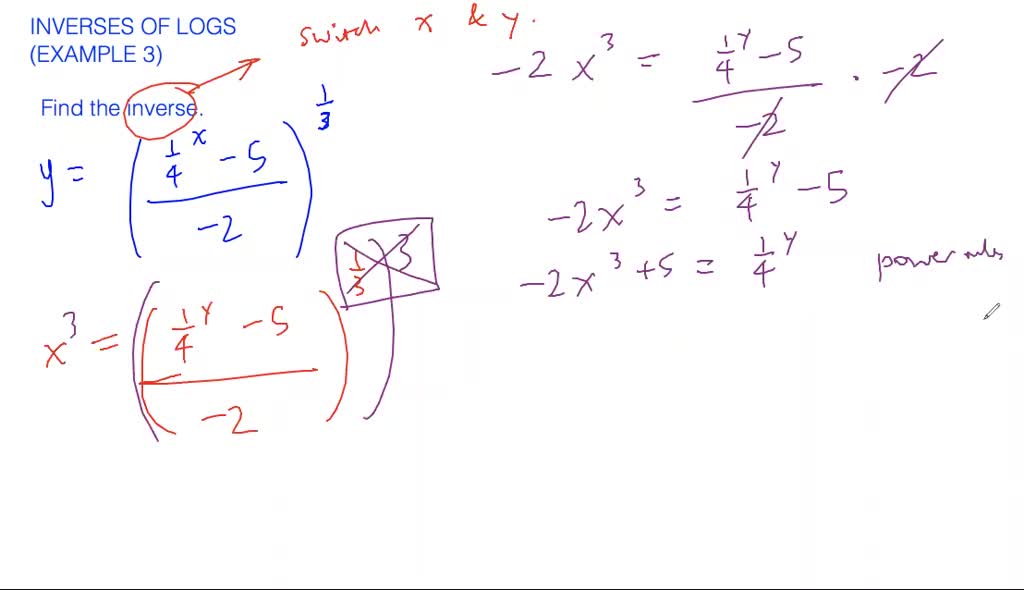 INVERSES OF LOGS
(EXAMPLE 3)
switch x & y.
Find the inverse.
y = ( (1/4^x - 5) / -2 )^1/3
x^3 = ( ( (1/4^y - 5) / -2 )^1/3 )^3
-2x^3 = (1/4^y - 5) / -2 · -2
-2x^3 = 1/4^y - 5
-2x^3 + 5 = 1/4^y
power rules